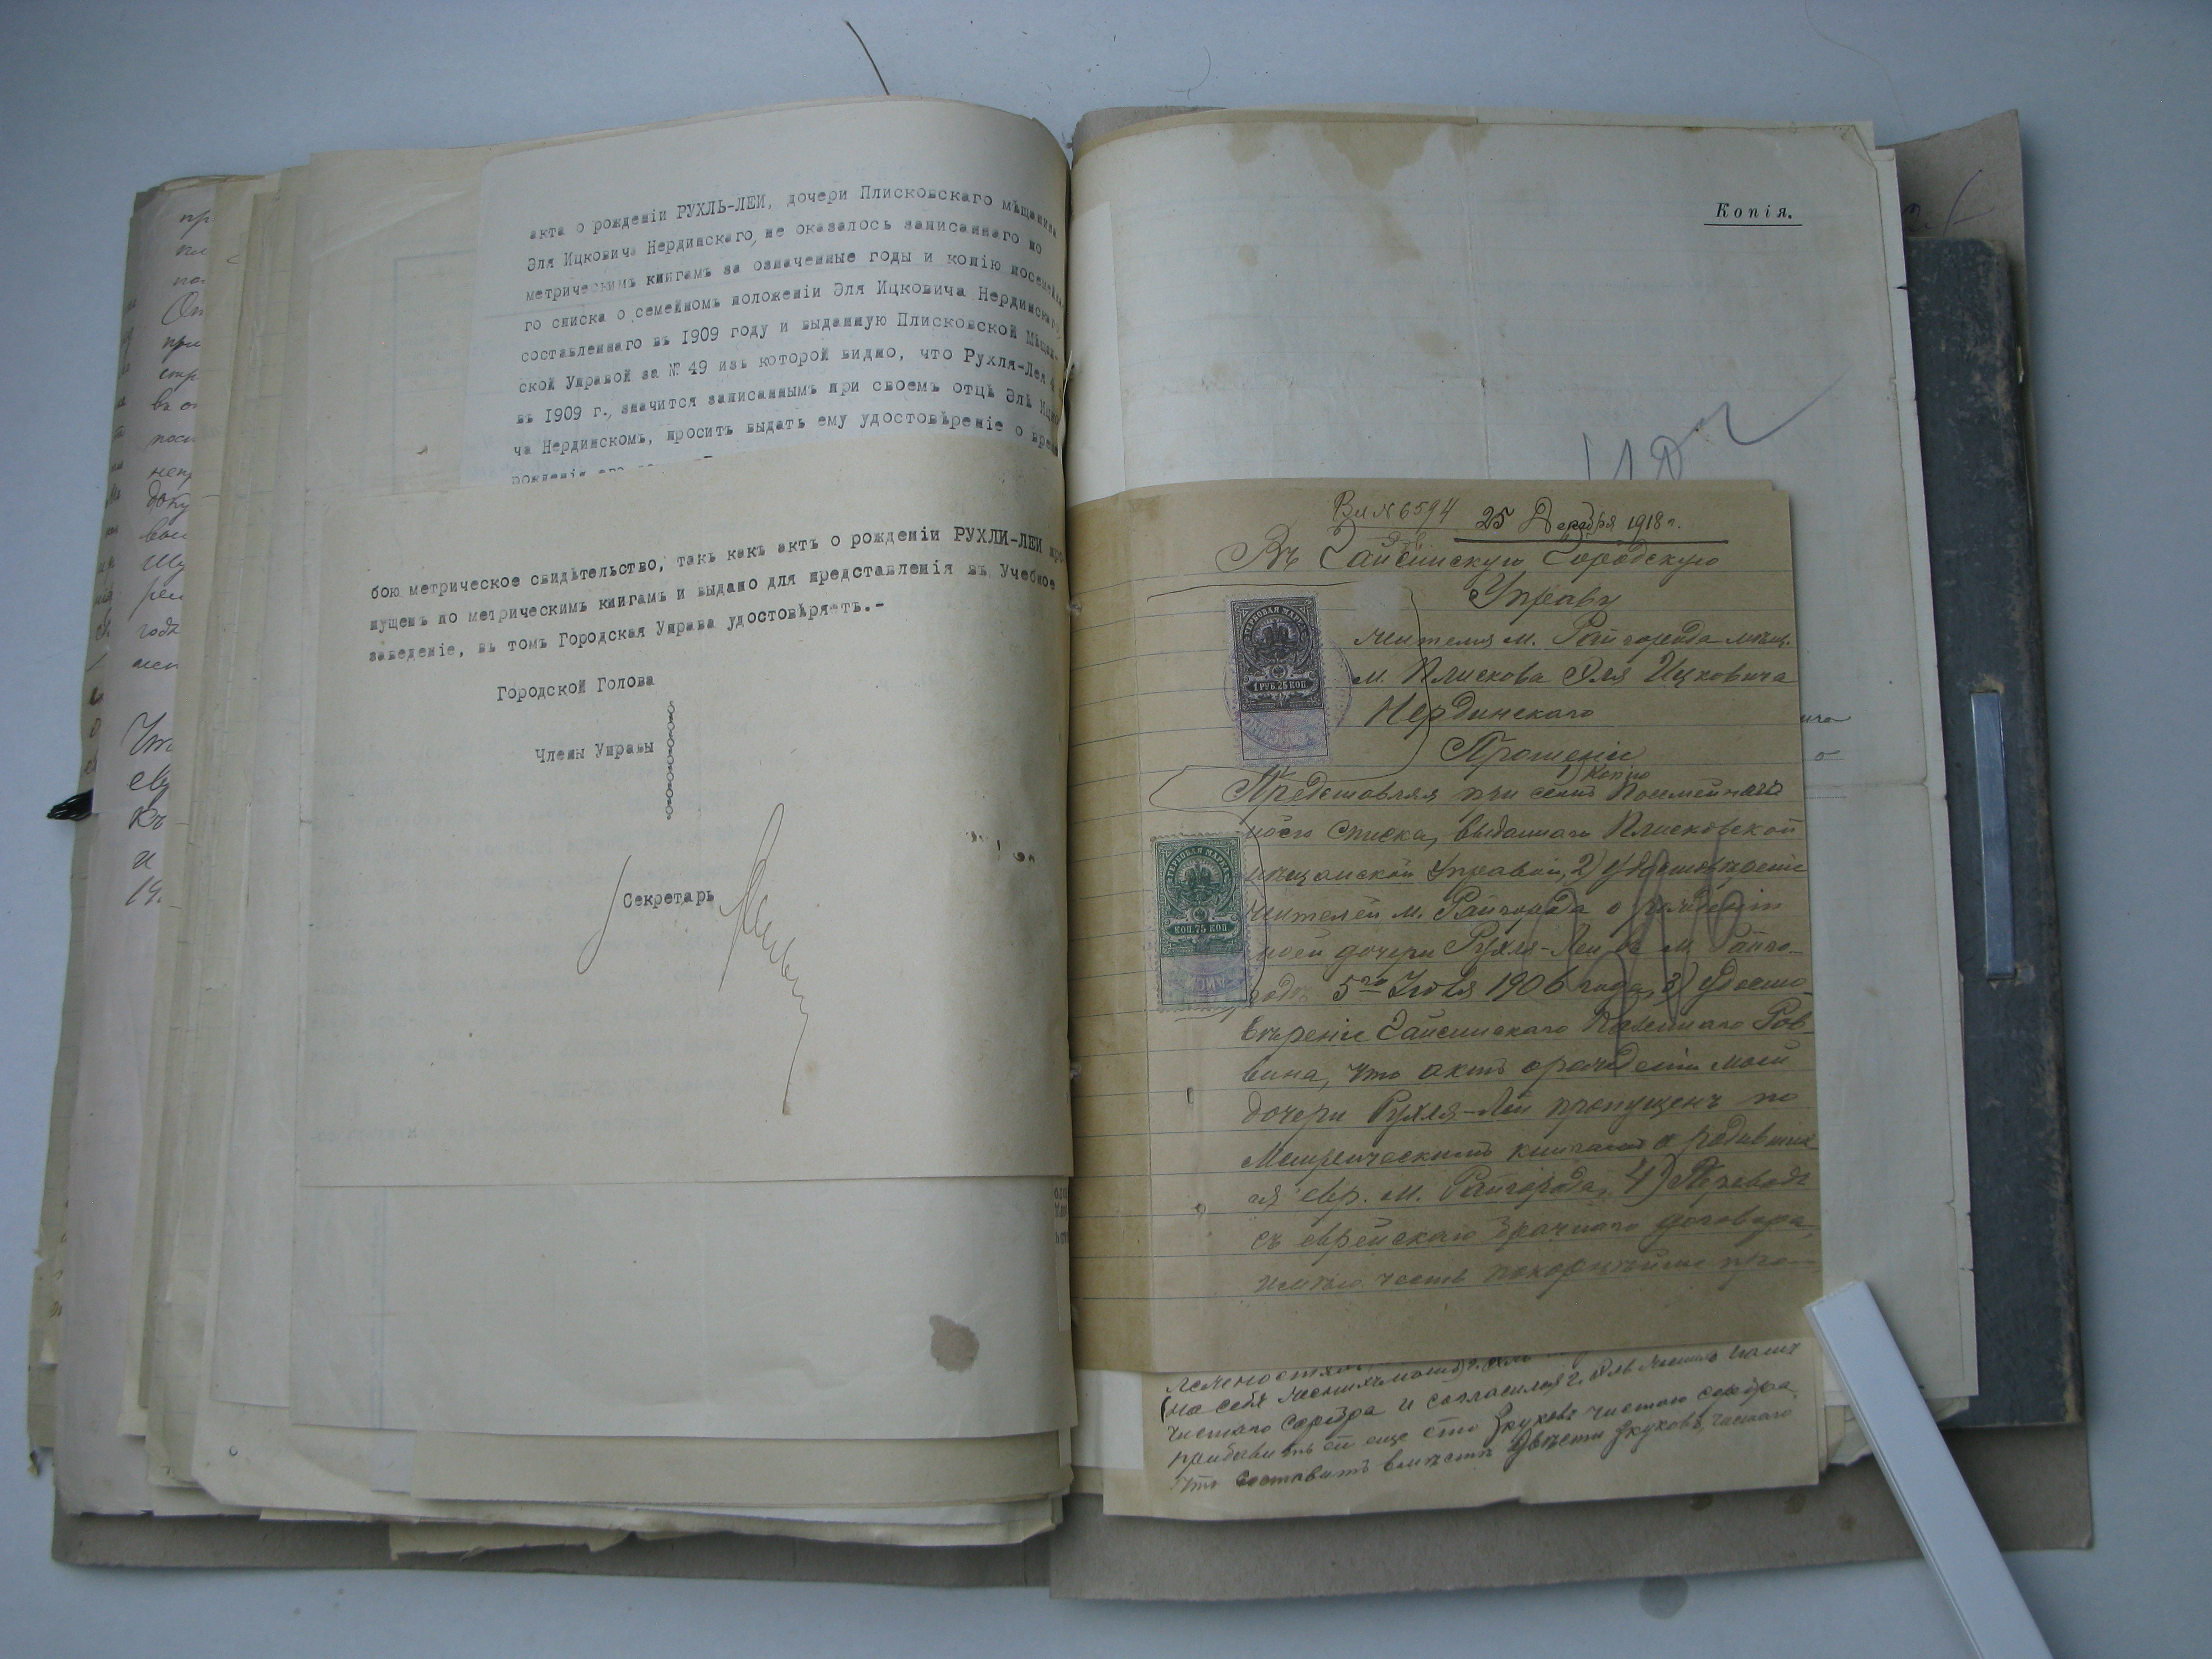 акта о рожденіи РУХЛЬ-ЛЕИ, дочери Плисковскаго мѣщанина
Эля Ицковича Нердинскаго, не оказалось записаннаго по
метрическимъ книгамъ за означенные годы и копію посемейна
го списка о семейномъ положеніи Эля Ицковича Нердинскаго
составленнаго въ 1909 году и выданную Плисковской Мѣщан-
ской Управой за № 49 изъ которой видно, что Рухля-Лея 4
въ 1909 г., значится записаннымъ при своемъ отцѣ Элѣ Ицко
ча Нердинскомъ, проситъ выдать ему удостовѣреніе о време
рожденія его
бою метрическое свидѣтельство, такъ какъ актъ о рожденіи РУХЛИ-ЛЕИ про
пущенъ по метрическимъ книгамъ и выдано для представленія въ Учебное
заведеніе, въ томъ Городская Управа удостовѣряетъ.-
Городской Голова
Члены Управы
Секретарь
Копія.
Вх № 6594 25 Декабря 1918 г.
Въ Гайсинскую Городскую
Управу
жителя м. Райгорода мѣщ.
м. Плискова Эля Ицковича
Нердинскаго
Прошеніе
1) Копію
Представляя при семъ Посемейнаго
моего списка, выданнаго Плисковской
мѣщанской Управой, 2) удостовѣреніе
жителей м. Райгорода о рожденіи
моей дочери Рухля-Леи въ м. Райго-
родѣ 5го Іюля 1906 года, 3) удосто-
вѣреніе Гайсинскаго Казеннаго Рав-
вина, что актъ о рожденіи моей
дочери Рухля-Леи пропущенъ по
Метрическимъ книгамъ о родивших
ся евр. м. Райгорода, 4) Переводъ
съ еврейскаго брачнаго договора,
имѣю честь покорнѣйше про-
ГЕРБОВАЯ МАРКА
1 РУБ. 25 КОП
ГЕРБОВАЯ МАРКА
КОП. 75 КОП
на себя
чистаго серебра и согласился г.
прибавить ей еще сто зкуковъ чистаго серебра,
что составитъ вмѣстѣ двѣсти зкуковъ чистаго